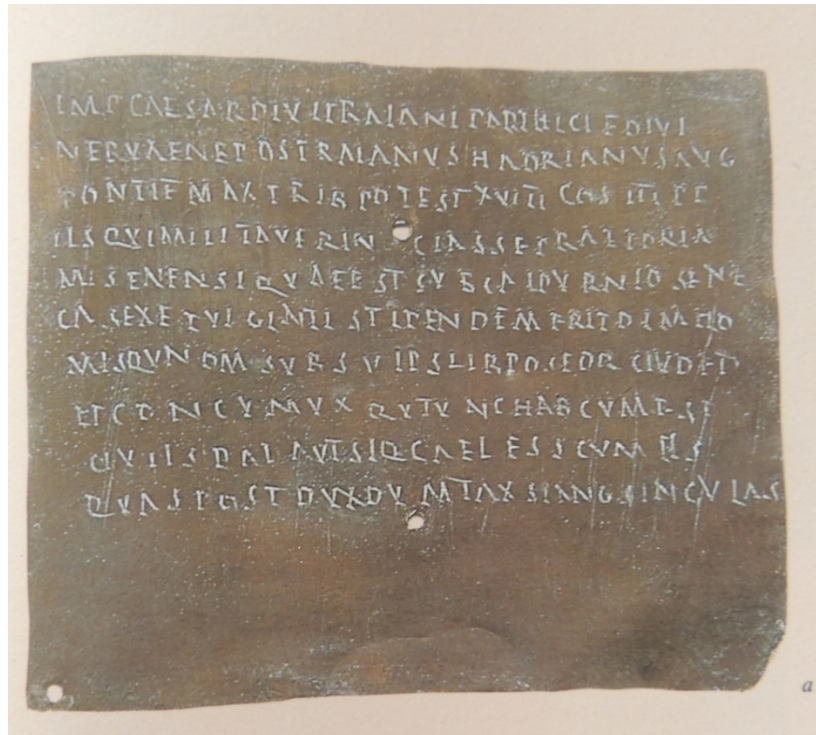 IMP CAESAR DIVI TRAIANI PARTHICI F DIVI
NERVAE NEPOS TRAIANVS HADRIANVS AVG
PONTIF MAX TRIB POTEST XVIII COS III PP
IIS QVI MILITAVERVN CLASSE PRAETORIA
MISENENSI QVAE EST SVB CALPVRNIO SENE
CA SEX ET VIGINTI STIPEND EMERIT DIMHO
MIS QVN OM SVBS IIPS LIB POSEOR CIVDED
ET CON CVM VX QVTVNC HAB CVM EST
CIVIIS DAT AVT SIQ CAEL ESS CVM IIS
QVAS POST DVX DVMTAX SIANG SINGVLAS
a